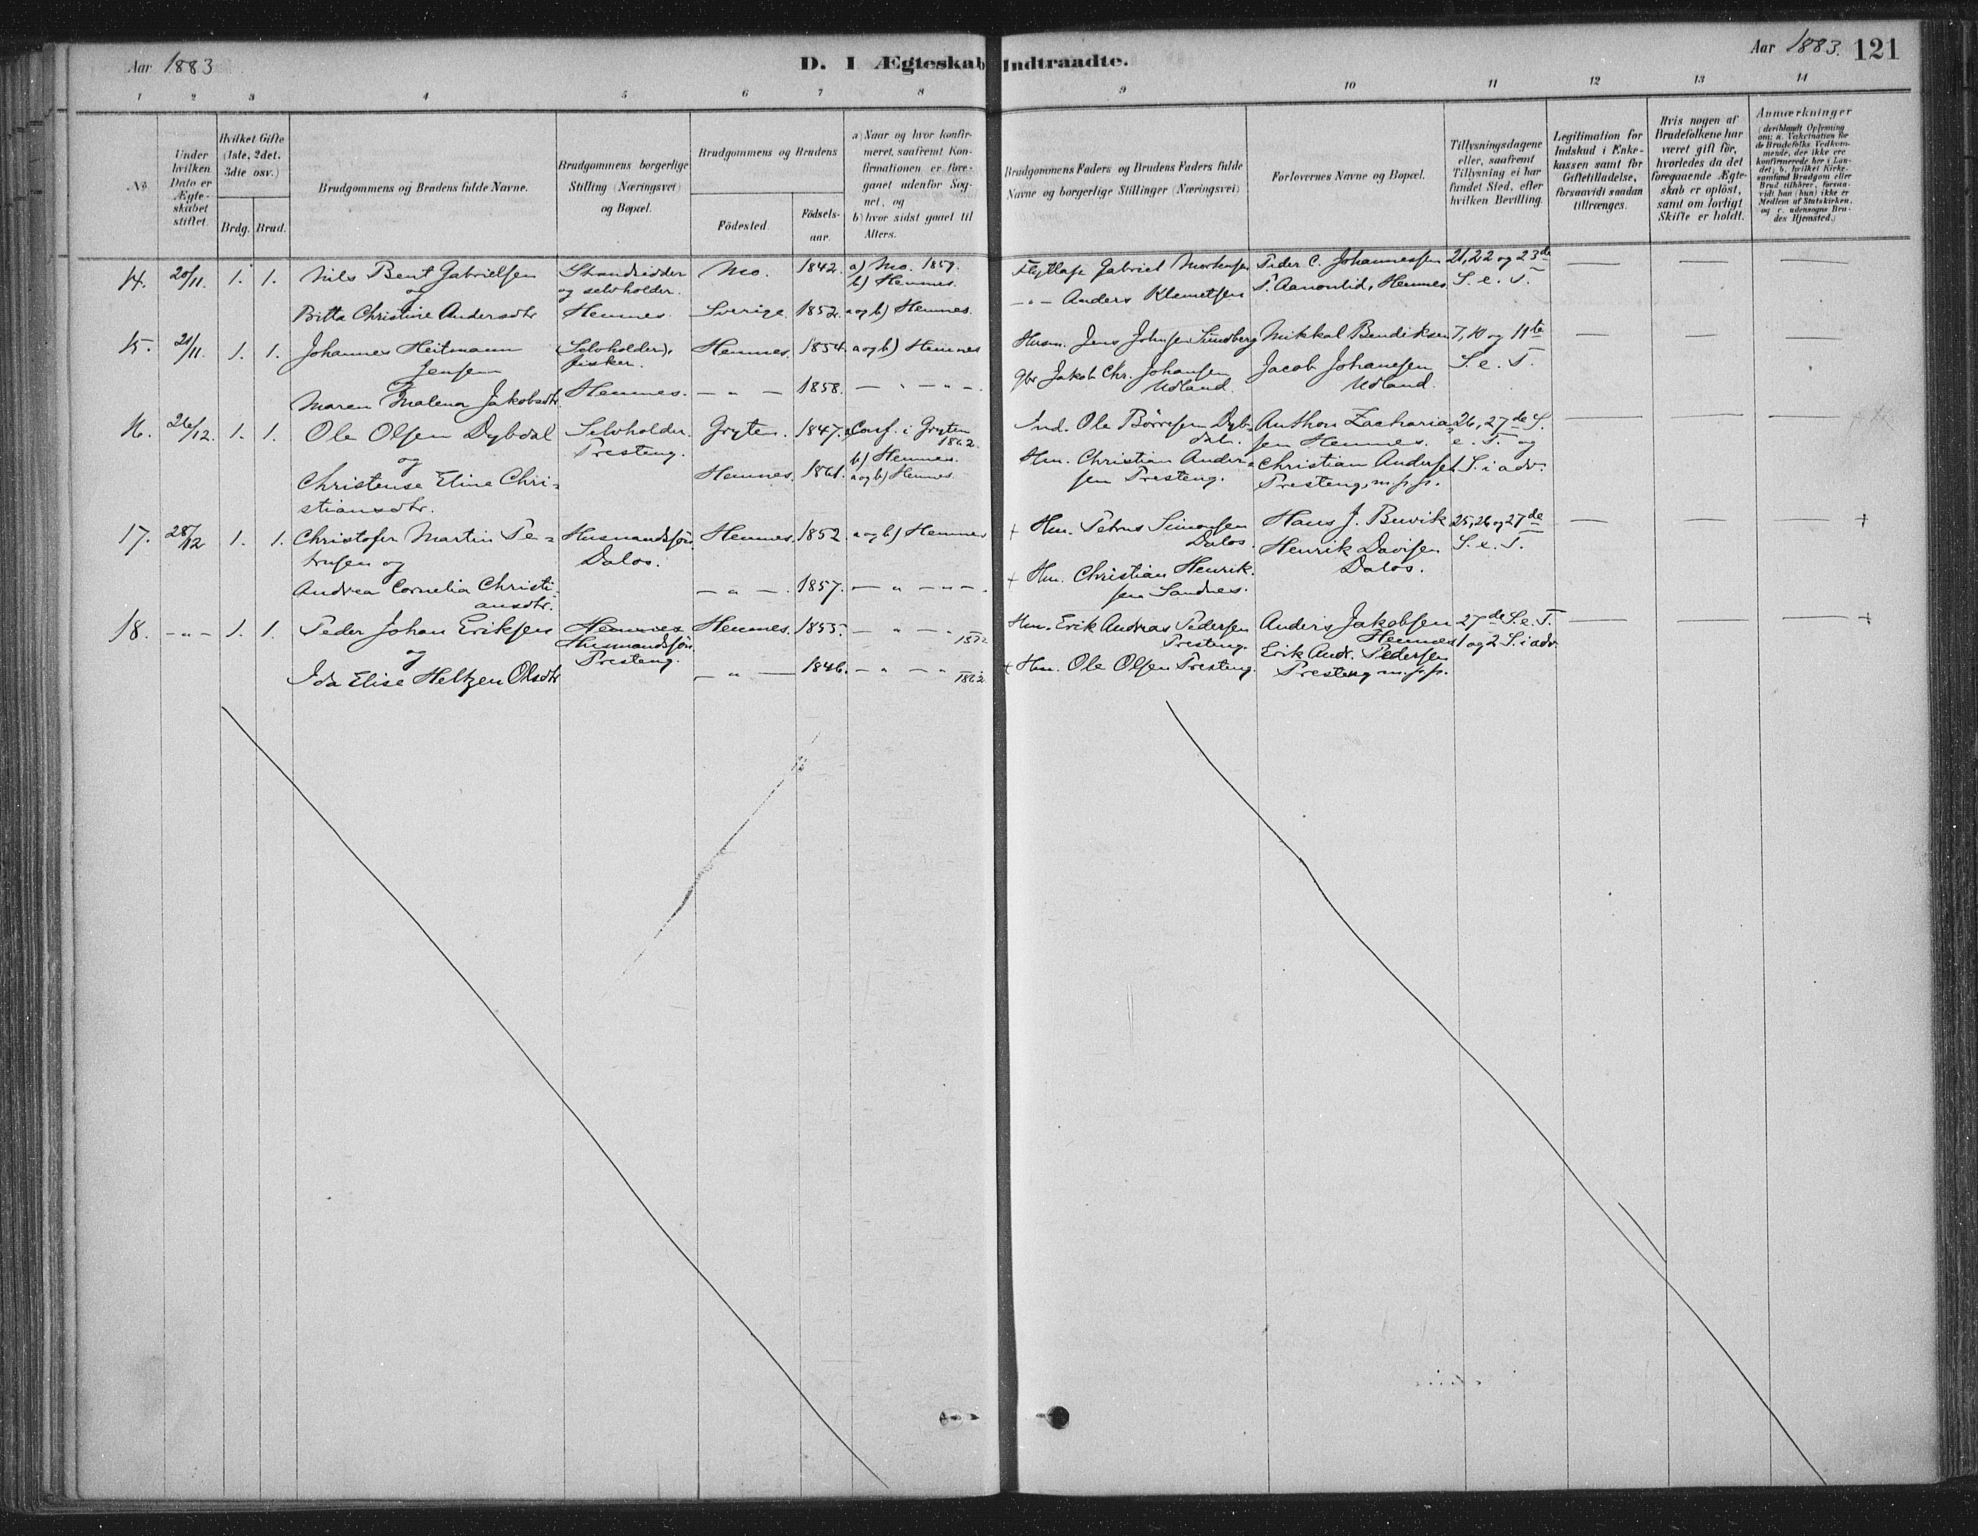 Aar 1883
D. I Ægteskab Indtraadte.
Aar 1883. 121
1 2 3 4 5 6 7 8 9 10 11 12 13 14
No.
Under hvilken Dato er Ægteskabet stiftet.
Hvilket Gifte (1ste, 2det, 3die osv.)
Brdg. Brud.
Brudgommens og Brudens fulde Navne.
Brudgommens borgerlige Stilling (Næringsvei) og Bopæl.
Brudgommens og Brudens
Födested.
Födsels-aar.
a) Naar og hvor konfirmeret, saafremt Konfirmationen er foregaaet udenfor Sognet, og
b) hvor sidst gaaet til Alters.
Brudgommens Faders og Brudens Faders fulde Navne og borgerlige Stillinger (Næringsvei)
Forlovernes Navne og Bopæl.
Tillysningsdagene eller, saafremt Tillysning ei har fundet Sted, efter hvilken Bevilling.
Legitimation for Indskud i Enkekassen samt for Giftetilladelse, forsaavidt saadan tiltrænges.
Hvis nogen af Brudefolkene har været gift før, hvorledes da det foregaaende Ægteskab er oplöst, samt om lovligt Skifte er holdt.
Anmærkninger
14. 20/11. 1. 1. Nils Bent Gabrielsen
og
Britta Christine Andersdtr
Strandsidder
og selvholder.
Hemnes.
Mo. 1842. a) Mo. 1859.
b) Hemnes.
Sverige. 1852. a og b) Hemnes.
Gabriel Mortensen
— " — Anders Klemetsen
Peder C. Johannessen
Hemnes
21, 22 og 23de
S. e. T.
15. 21/11. 1. 1. Johannes Heitmann
Jensen
Maren Malena Jakobsdtr.
(Selvholder),
fisker.
Hemnes.
Hemnes. 1854. a og b) Hemnes
— " — 1858. — " — " —
Husm. Jens Johnsen Sundberg
Gbr Jakob Chr. Johansen
Udland.
Mikkal Bendiksen
Jacob Johansen
Udland.
7, 10 og 11te
S. e. T.
16. 26/12. 1. 1. Ole Olsen Dybdal
og
Christense Eline Chri-
stiansdtr.
Selvholder.
Presteng.
Gryten. 1847. Conf. i Gryten
1862.
b) Hemnes.
Hemnes. 1861. a og b) Hemnes.
Ind. Ole Børresen Dyb-
dal.
Hm. Christian Ander-
sen Presteng.
Anthon Zacharia-
sen Hemnes.
Christian Andersen
Presteng, m. p. p.
26, 27de S.
e. T. og
1 S. i adv.
17. 28/12 1. 1. Christofer Martin Pe-
trusen og
Andrea Cornelia Christi-
ansdtr.
Husmandssøn
Dalos.
Hemnes. 1852. a og b) Hemnes
— " — 1857. — " — " —
+ Hm. Petrus Simonsen
Dalos.
+ Hm. Christian Henrik-
sen Sandnes.
Hans J. Buvik
Henrik Davisen
Dalos.
25, 26 og 27de
S. e. T.
+
18. — " — 1. 1. Peder Johan Eriksen
og
Ida Elise Heltzen Olsdtr
Hemnes
Husmandssøn
Presteng.
Hemnes. 1855. — " — "
— " — 1846. — " — "
1862
Hm. Erik Andreas Pedersen
Presteng.
+ Hm. Ole Olsen Presteng.
Anders Jakobsen
Hemnes
Erik Andr. Pedersen
Presteng m. p. p.
27de S. e. T.
1 og 2 S. i adv.
+